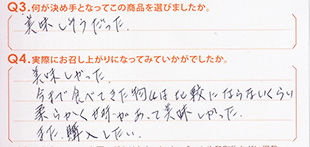 Q3.何が決め手となってこの商品を選びましたか。
美味しそうだった。
Q4.実際にお召し上がりになってみていかがでしたか。
美味しかった。
今まで食べてきた物とは比較にならないくらい
柔らかく甘みがあって美味しかった。
また、購入したい。